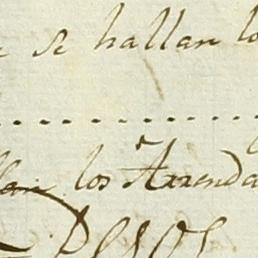 se hallan lo
llan los Arrenda
Pesos